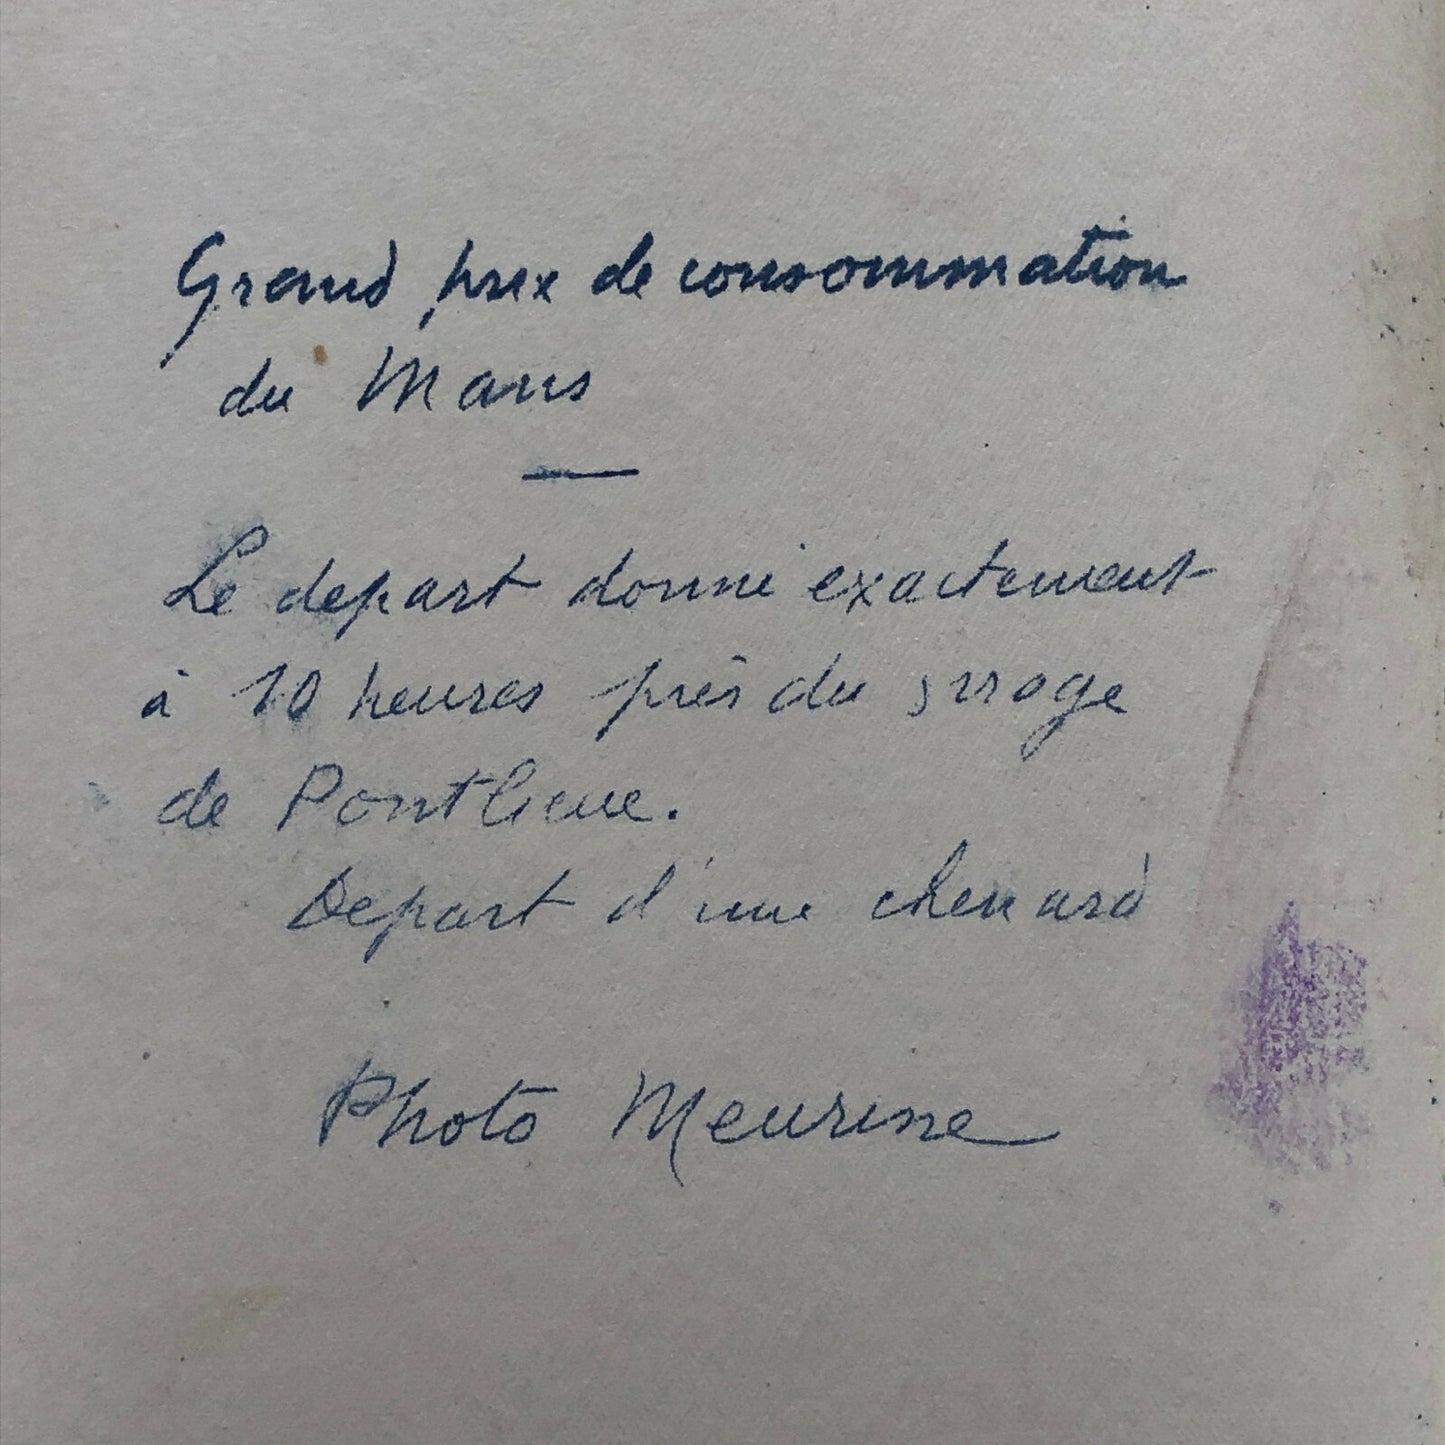 Grand prix de consommation
du Mans
Le depart donné exactement
à 10 heures près du
de Pontlieue.
Depart d'une chenard
Photo Meurisse